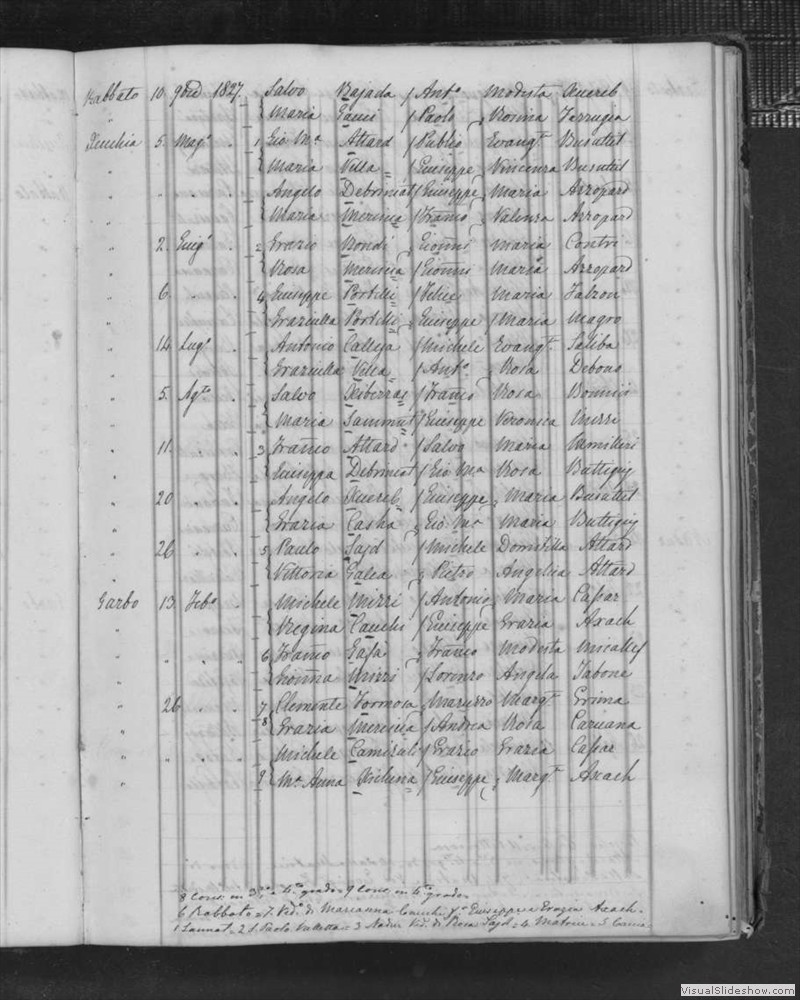 Rabbato 10 9bre 1827. Salvo Bajada / Ant.o Modesta Xuereb
" Maria Gauci / Paolo Rosina Ferrugia
Xeuchia 5. Mag.o 1 Gio M.a Attard / Publio Evang.ta Busuttil
" Maria Vella / Giuseppe Vincenza Busuttil
" Angelo Debrincat / Giuseppe Maria Azzopard
" Maria Mercieca / Franco Valenza Azzopard
" 2. Giug.o 2 Grazio Rondi Gionni Maria
" Rosa / Gionni Maria Azzopard
" 6. 4 Giuseppe Portelli / Felice Maria Falzon
" Graziulla Portelli Giuseppe / Maria Magro
" 14 Lug.o Antonio Calleja / Michele Evang.ta Saliba
" Graziulla Vella / Ant.o Rosa Debono
" 5. Ag.to Salvo Xiberras / Franco Rosa Bonnici
" Maria Sammut / Giuseppe Veronica Mizzi
" 11. 3 Franco Attard / Salvo Maria Camilleri
" Giuseppa Debrincat / Gio M.a Rosa Buttigig
" 20 Angelo Xuereb / Giuseppe Maria Busuttil
" Grazia Casha Gio M.a Maria Buttigig
" 26 5 Paulo Sajd / Michele Domitilla Attard
" Vittoria Galea Pietro Angelica Attard
Garbo 13. Feb.o Michele Mizzi / Antonio Maria Cassar
" Regina Cauchi / Giuseppe Grazia Axach
" 6 Franco Gafa Franco Modesta Micallef
" Gionna Mizzi / Lorenzo Angela Tabone
" 26 7 Clemente Formosa Maruzzo Marg.ta Grima
" 8 Grazia Mercieca / Andrea Rosa Caruana
" Michele / Grazio Grazia Cassar
" 9 M.a Anna Xichuna / Giuseppe Marg.ta Axach
8 Cons. in 3.o e 4.to grado = 9 Cons. in 4.to grado
6 Rabbato = 7. Ved.o di Marianna Cauchi Giuseppe e Grazia Axach.
1 Sannat = 2 S. Paolo Valletta = 3 Nadur Ved. di Rosa Sajd = 4
VisualSlideshow.com